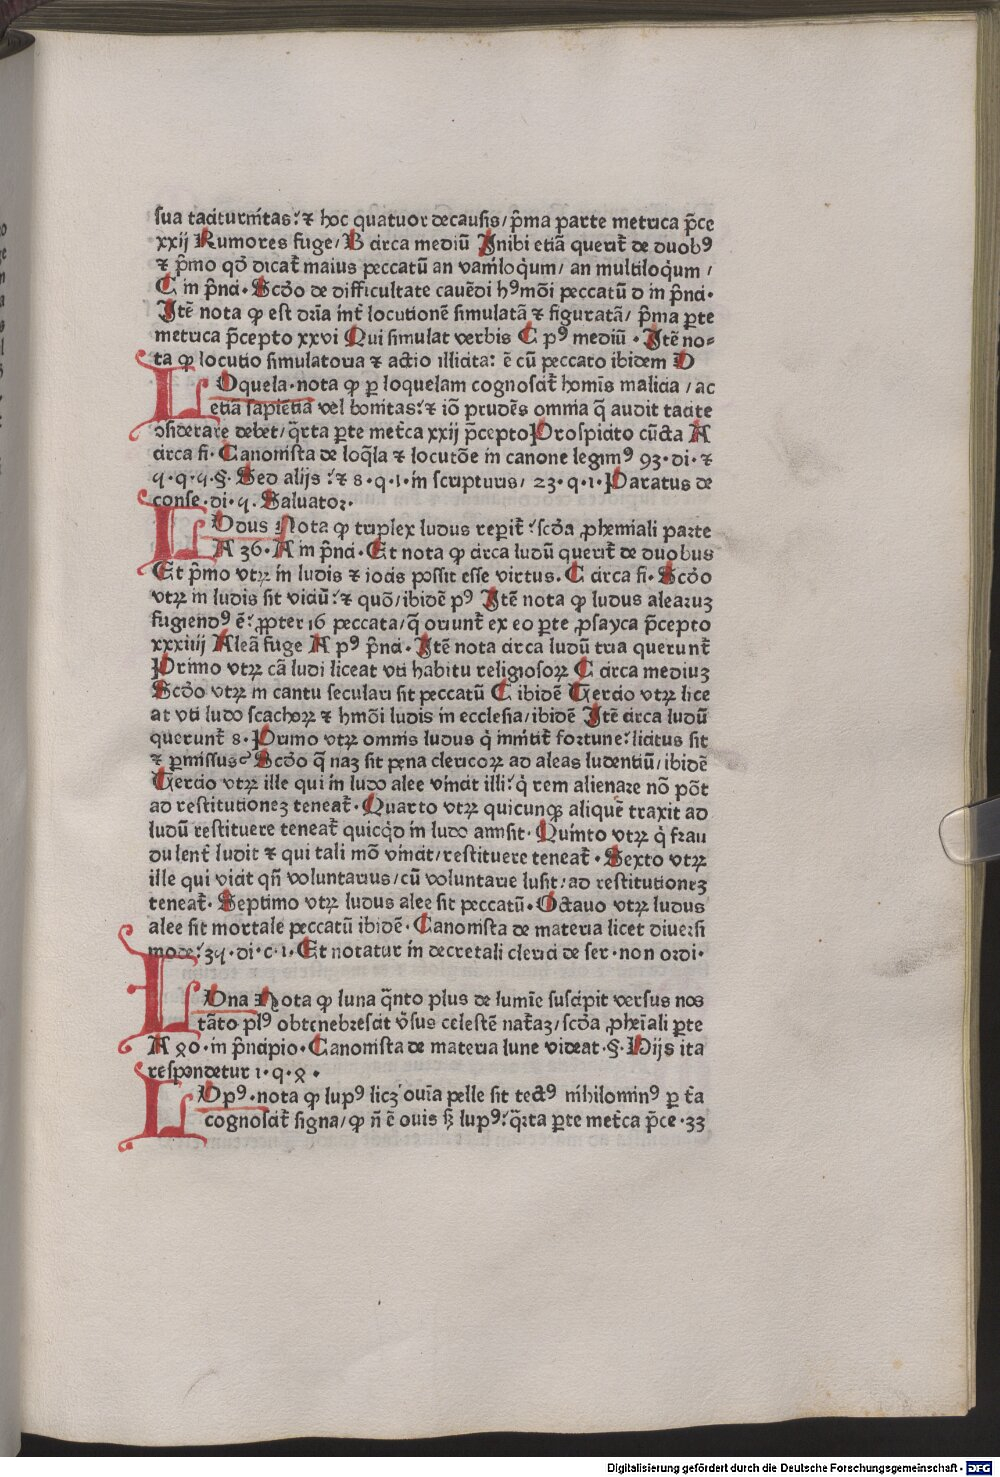 sua taciturnitas:ꝛ hoc quatuor decausis/ p̃ma parte metrica p̃ce
xxij Rumores fuge/ B circa mediū Inibi etiā querit̃ de duobꝰ
ꝛ p̃mo qđ dicat̃ maius peccatū an vaniloq̇um/ an multiloq̇um /
C in p̃nci· Scďo de difficultate cauēdi hꝰmōi peccatū d in p̃nci·
Itē nota ꝙ est dr̃ia int̃ locutionē simulatā ꝛ figuratā/ p̃ma ꝑte
metrica p̃cepto xxvi Qui simulat verbis C pꝰ mediū · Itē no⸗
ta ꝙ locutio simulatoria ꝛ actio illicita: ē cū peccato ibidem D
LOquela·nota ꝙ ꝑ loquelam cognoscit̃ homīs malicia /ac
etiā sapiētia vel bonitas:ꝛ iō prudēs omnia q̃ audit tacite
ↄsiderare debet/ q̃rta ꝑte met̃ca xxij p̃cepto Prospicito cūcta A
circa fi· Canonista de loq̃la ꝛ locutōe in canone legimꝰ 93·di·ꝛ
ɥ·q·ɥ·§·Sed alijs :ꝛ 8·q·1·in scripturis/ 23·q·1·Paratus de
conse·di·ɥ·Saluator·
LUdus Nota ꝙ triplex ludus reperit̃:scďa ꝓhemiali parte
A 36·A in p̃nci·Et nota ꝙ circa ludū querit̃ de duobus
Et p̃mo vtꝝ in ludis ꝛ iocis possit esse virtus. C circa fi·Scďo
vtꝝ in ludis sit viciū:ꝛ quō/ibidē pꝰ Itē nota ꝙ ludus alearuꝫ
fugiendꝰ ē:ꝓpter 16 peccata/q̃ oriunt̃ ex eo ꝑte ꝓsayca p̃cepto
xxxiiij Aleā fuge A pꝰ p̃nci·Itē nota circa ludū tria querunt̃
Primo vtꝝ cā ludi liceat vti habitu religiosoꝝ C circa mediuꝫ
Scďo vtꝝ in cantu seculari sit peccatū C ibidē Tercio vtꝝ lice
at vti ludo scachoꝝ ꝛ hmōi ludis in ecclesia/ibidē Itē circa ludū
querunt̃ 8·Primo vtꝝ omnis ludus q̇ innitit̃ fortune:licitus sit
ꝛ ꝑmissus Scďo q̃ naꝫ sit pena clericoꝝ ad aleas ludentiū/ibidē
Tercio vtꝝ ille qui in ludo alee vincit illi:q̇ rem alienare nō pōt
ad restitutioneꝫ teneat̃·Quarto vtꝝ quicunqꝫ aliquē traxit ad
ludū restituere teneat̃ quicq̇d in ludo amisit·Quinto vtꝝ q̇ frau
dulent̃ ludit ꝛ qui tali mō vincit/restituere teneat̃·Sexto vtꝝ
ille qui vicit qñ voluntarius/cū voluntarie lusit:ad restitutioneꝫ
teneat̃·Septimo vtꝝ ludus alee sit peccatū·Octauo vtꝝ ludus
alee sit mortale peccatū ibidē·Canonista de materia licet diuersi
mode:3ɥ·di·c·1·Et notatur in decretali clerici de ser·non ordi·
LUna Nota ꝙ luna q̃nto plus de lumīe suscipit versus nos
tāto plꝰ obtenebrescit v̓sus celestē nat̃aꝫ/scďa ꝓhēiali ꝑte
A ꝗ0·in p̃ncipio·Canonista de materia lune videat·§·Hijs ita
respondetur 1·q·ꝗ·
LUpꝰ·nota ꝙ lupꝰ licꝫ ouīa pelle sit tectꝰ nihilominꝰ ꝑ t̃ia
cognoscit̃ signa/ꝙ ñ ē ouis sꝫ lupꝰ:q̃rta ꝑte met̃ca p̃ce·33
Digitalisierung gefördert durch die Deutsche Forschungsgemeinschaft - DFG